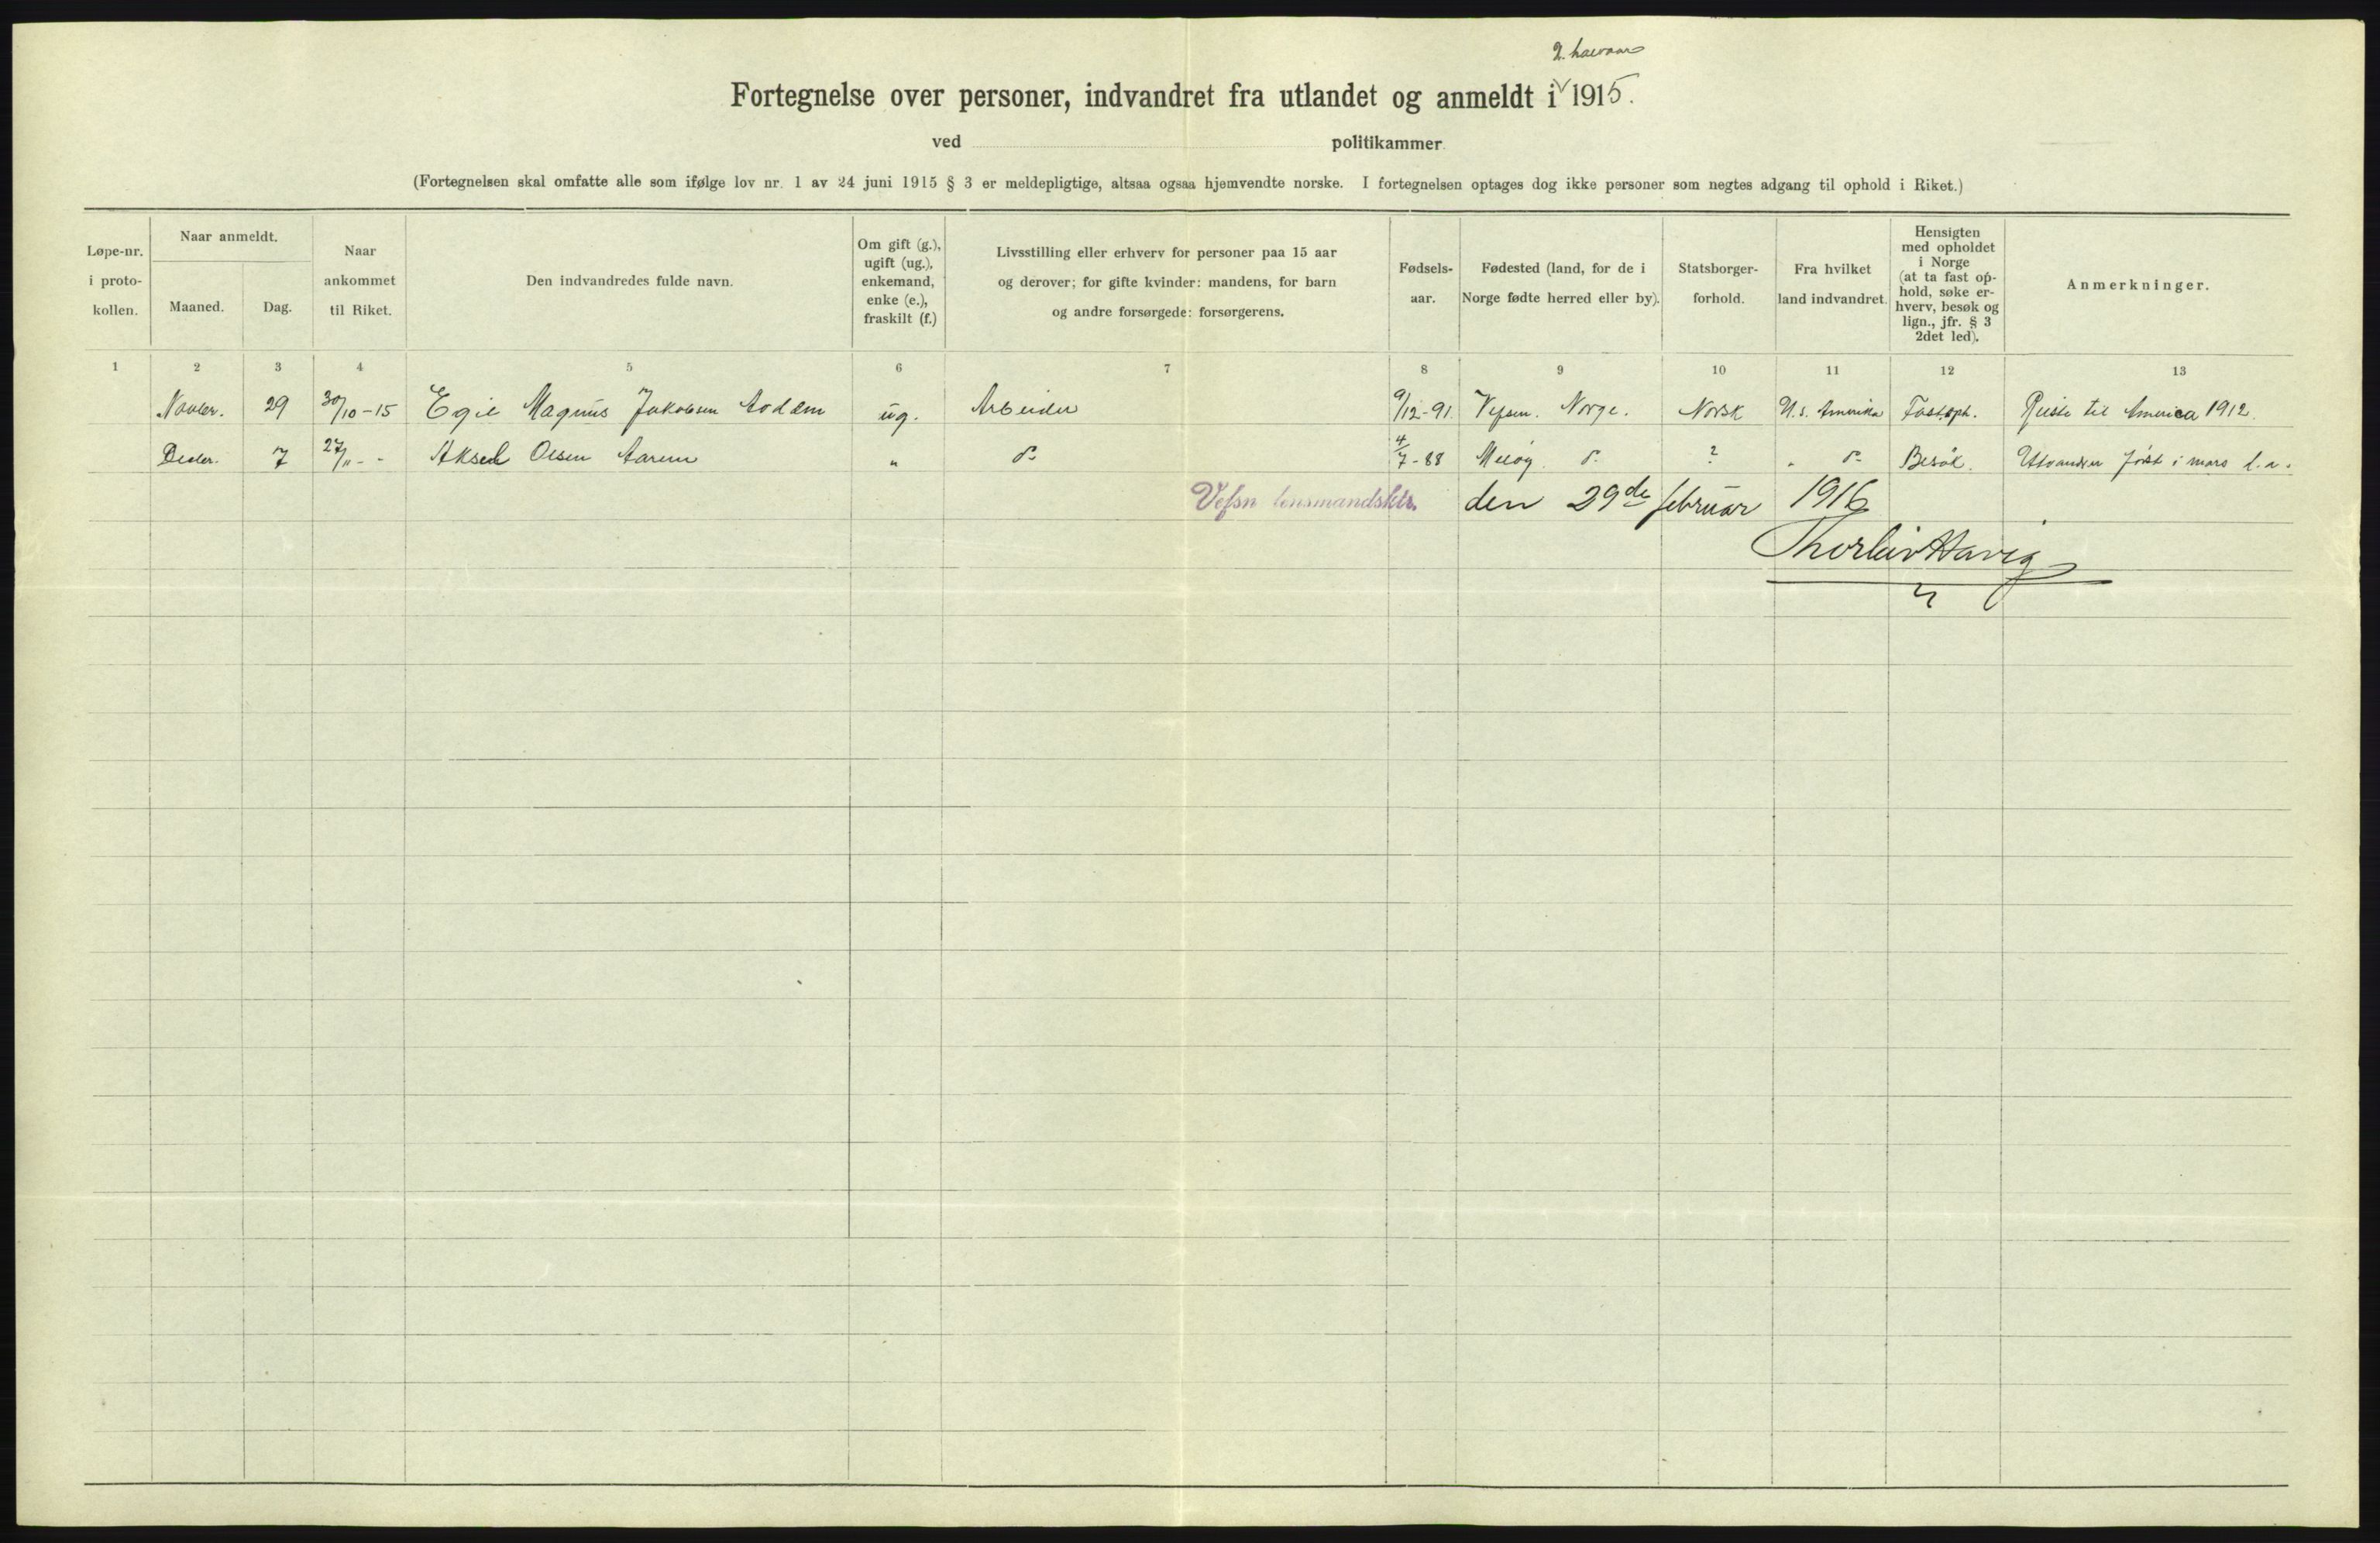 2. halvaar
Fortegnelse over personer, indvandret fra utlandet og anmeldt i 1915.
ved politikammer
(Fortegnelsen skal omfatte alle som ifølge lov nr. 1 av 24 juni 1915 § 3 er meldepligtige, altsaa ogsaa hjemvendte norske. I fortegnelsen optages dog ikke personer som negtes adgang til ophold i Riket.)
Løpe-nr. i proto-kollen.
Naar anmeldt.
Maaned. Dag.
Naar ankommet til Riket.
Den indvandredes fulde navn.
Om gift (g.), ugift (ug.), enkemand, enke (e.), fraskilt (f.)
Livsstilling eller erhverv for personer paa 15 aar
og derover; for gifte kvinder: mandens, for barn
og andre forsørgede: forsørgerens.
Fødsels-aar.
Fødested (land, for de i Norge fødte herred eller by).
Statsborger-forhold.
Fra hvilket land indvandret.
Hensigten med opholdet i Norge (at ta fast op-hold, søke er-hverv, besøk og lign., jfr. § 3 2det led).
Anmerkninger.
1 2 3 4 5 6 7 8 9 10 11 12 13
Novbr. 29 30/10-15 Egil Magnus Jakobsen ug. Arbeider 9/12-91. Vefsen. Norge. Norsk U.S. Amerika Fast oph. Reiste til America 1912.
Desbr. 7 27/11 - - Aksel Olsen „ do 4/7-88 Meløy. do ? „ do Besøk. Utvandrer først i mars d.a.
Vefsn lensmandsktr. den 29de februar 1916
Thorleiv Havig